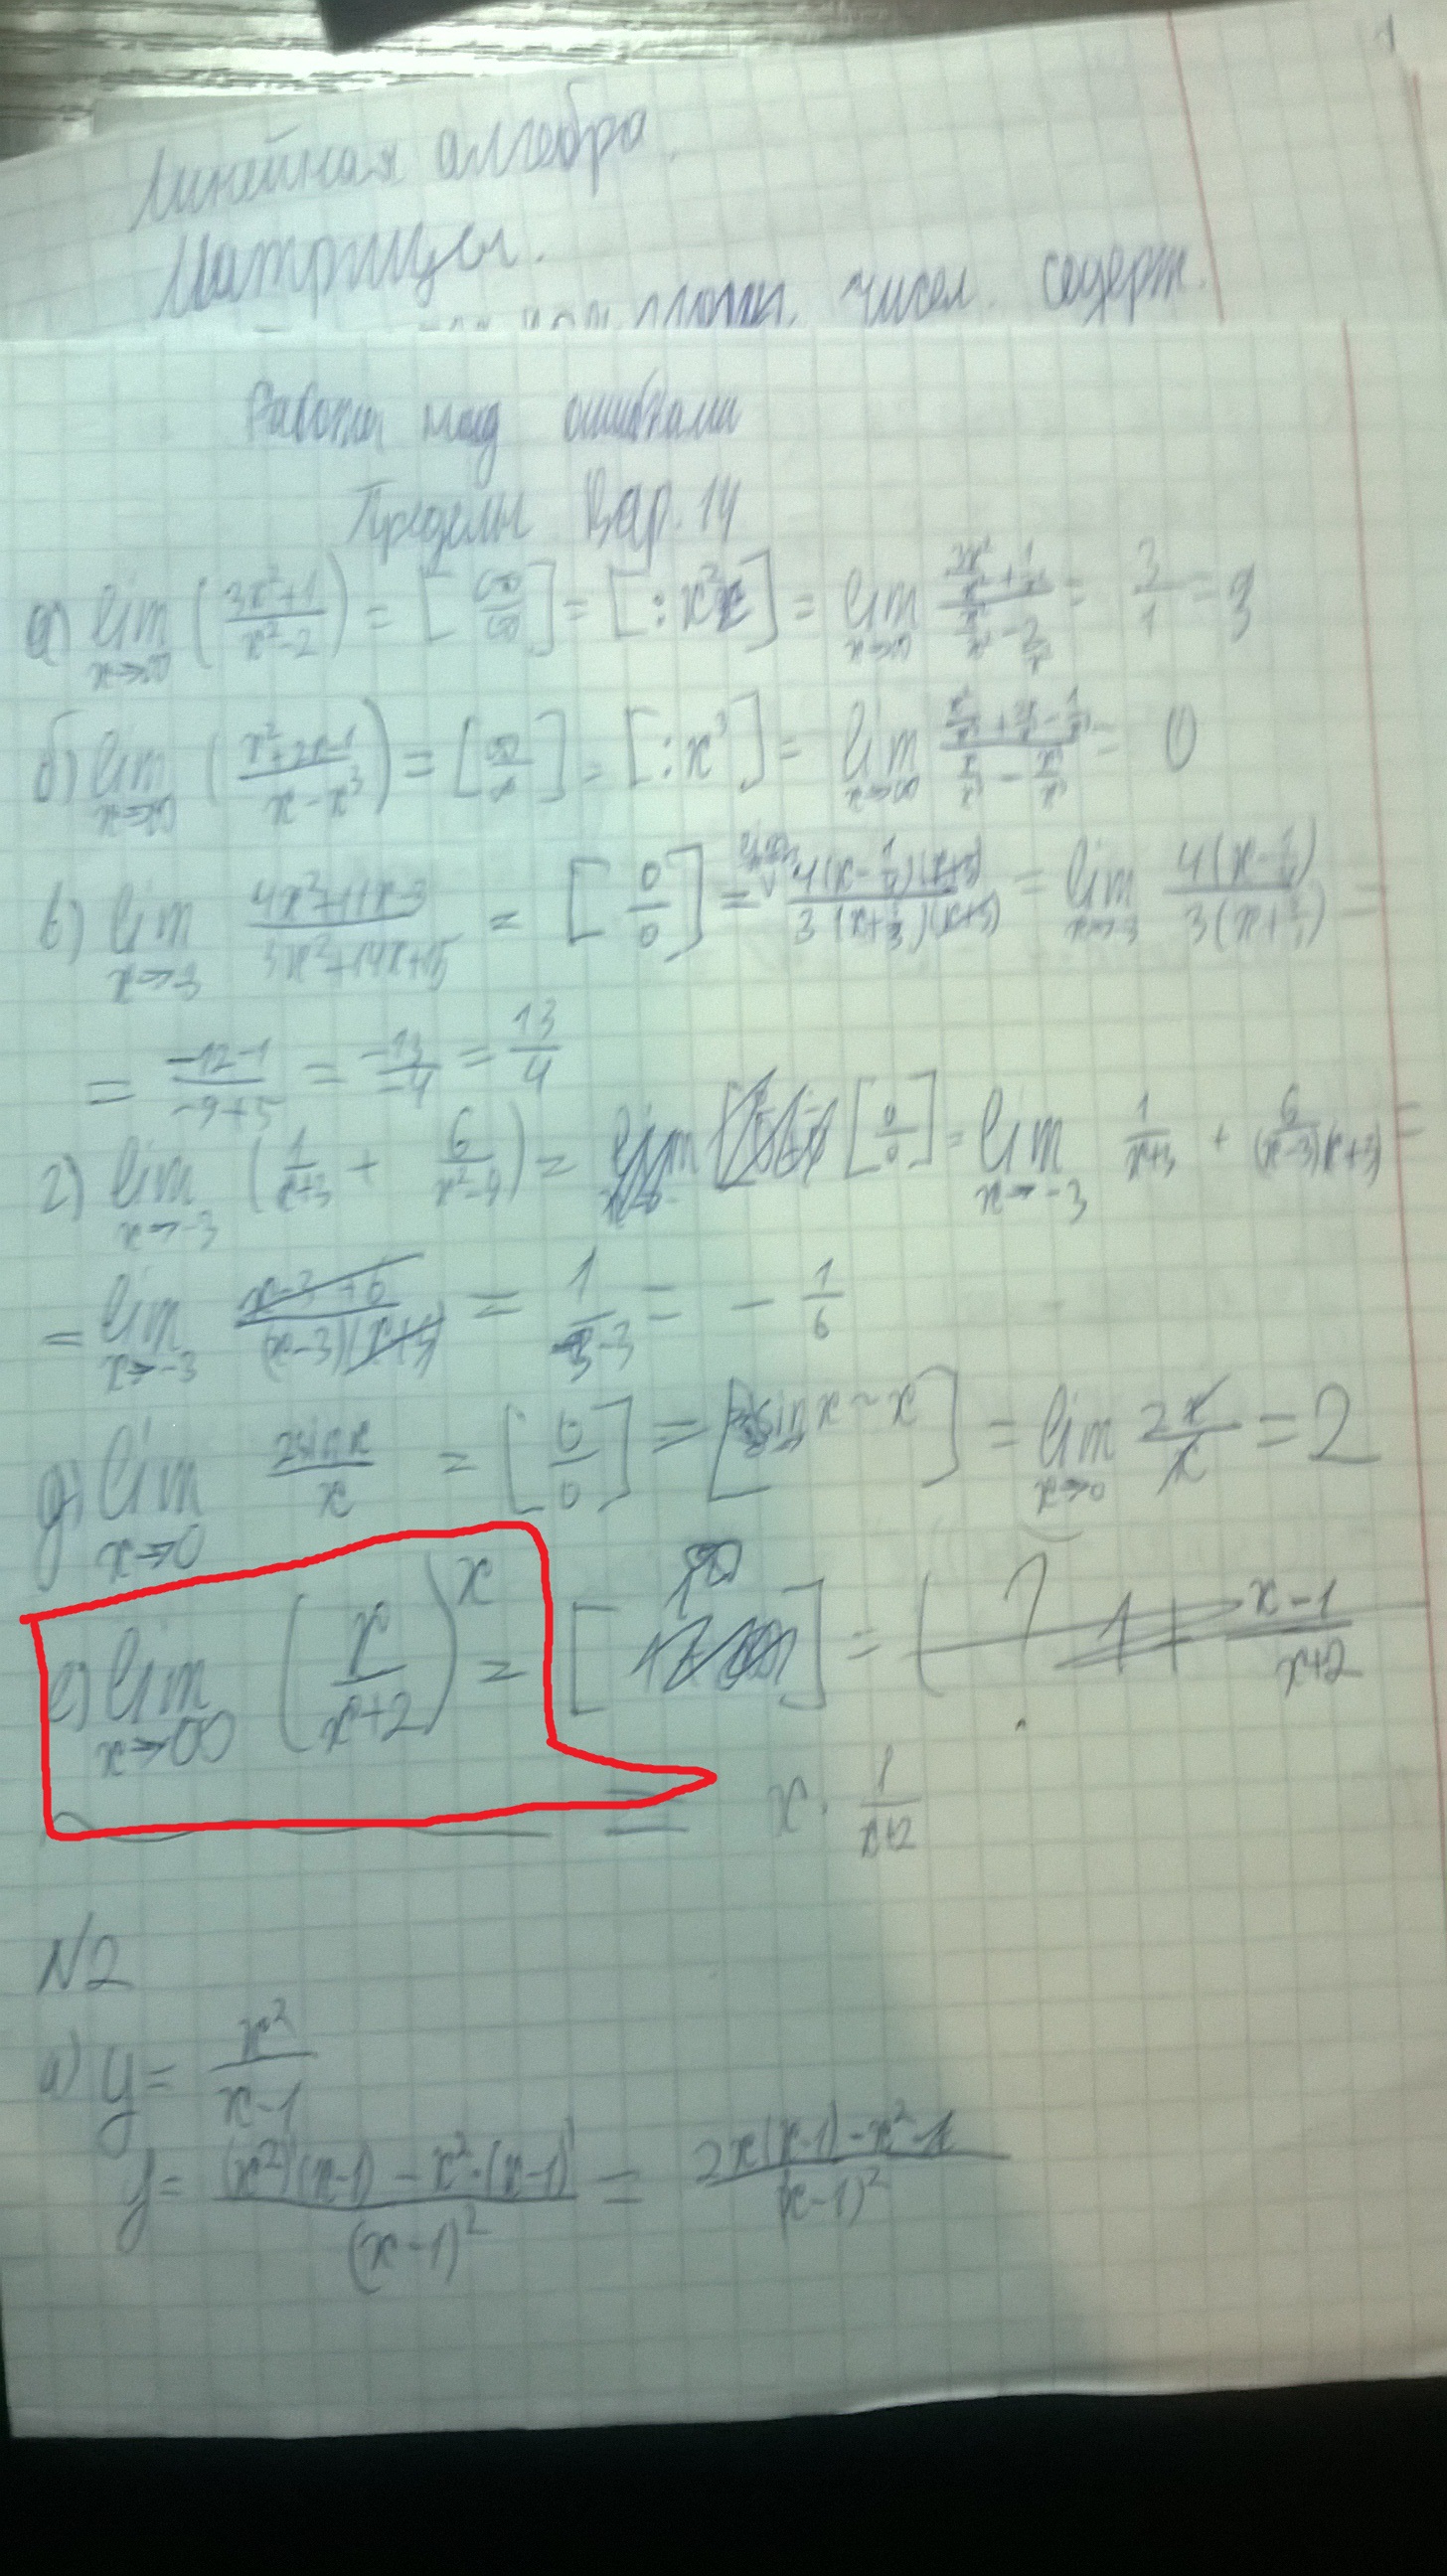 1
Линейная алгебра.
Матрицы.
чисел. содерж.
Работа над ошибками
Пределы Вар. 14
а) lim x→∞ (3x²+1 / x²-2) = [∞/∞] = [: x²] = lim x→∞ (3x²/x² + 1/x²) / (x²/x² - 2/x²) = 3/1 = 3
б) lim x→∞ (x²+2x-1 / x-x³) = [∞/∞] = [: x³] = lim x→∞ (x²/x³ + 2x/x³ - 1/x³) / (x/x³ - x³/x³) = 0
в) lim x→-3 4x²+11x-3 / 3x²+14x+15 = [0/0] = 4(x-1/4)(x+3) / 3(x+5/3)(x+3) = lim x→-3 4(x-1/4) / 3(x+5/3) =
= -12-1 / -9+5 = -13/-4 = 13/4
г) lim x→-3 (1/x+3 + 6/x²-9) = [0/0] = lim x→-3 1/x+3 + 6/(x-3)(x+3) =
= lim x→-3 x-3+6 / (x-3)(x+3) = 1/-3-3 = - 1/6
д) lim x→0 2sinx/x = [0/0] = [sinx ~ x] = lim x→0 2x/x = 2
е) lim x→∞ (x/x+2)^x = [1^∞] = ( ? 1 + x-1/x+2
= x · 1/x+2
N2
а) y = x²/x-1
y = (x²)'(x-1) - x²·(x-1)' / (x-1)² = 2x(x-1) - x²·1 / (x-1)²